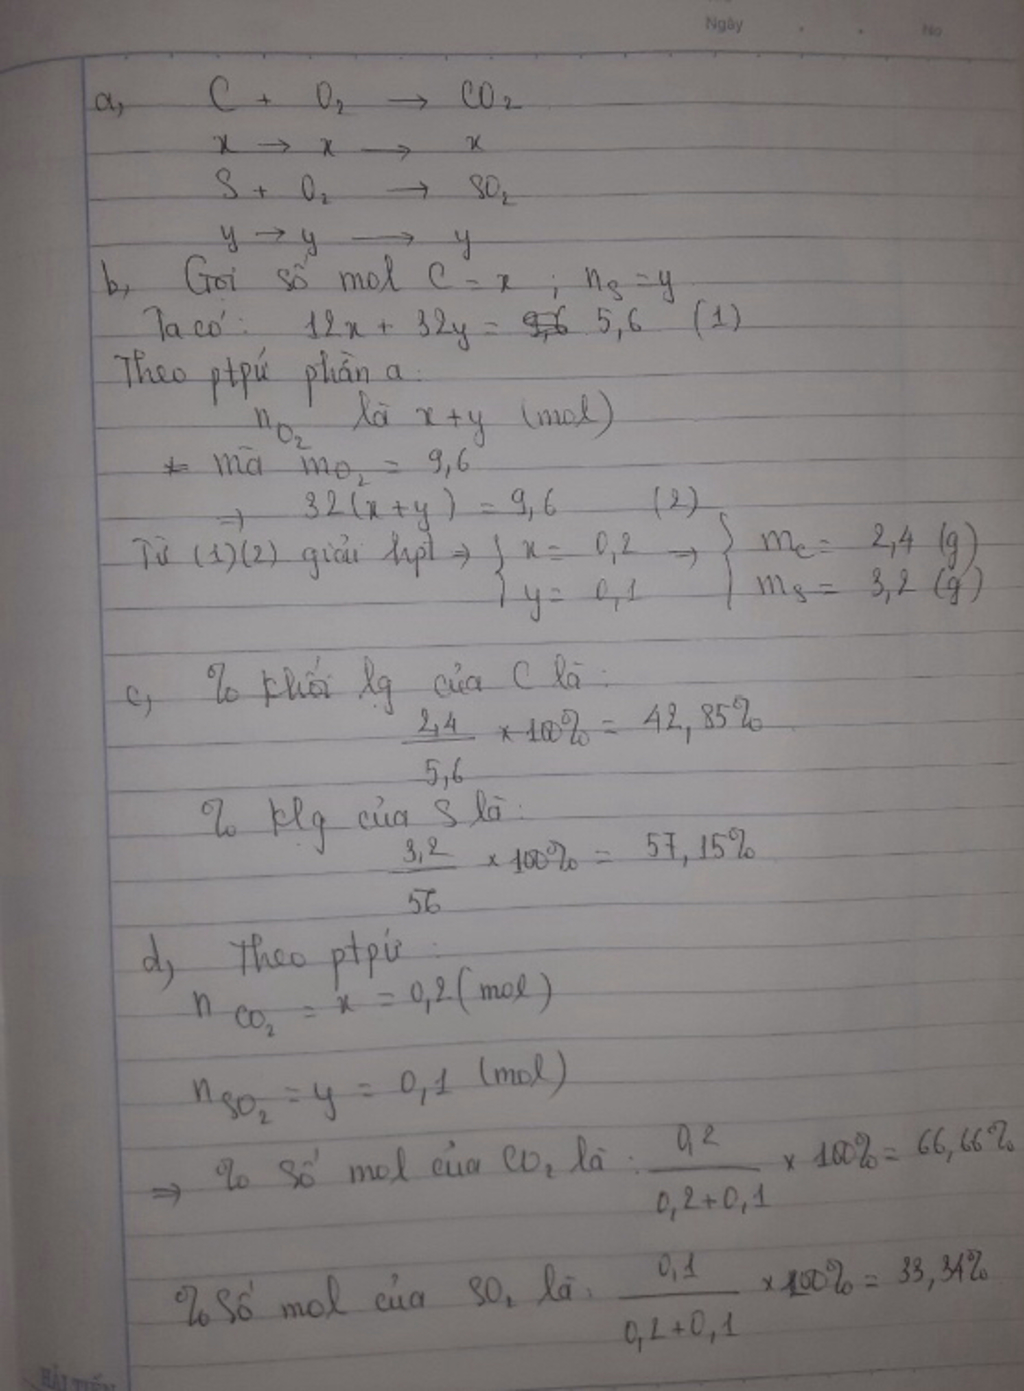 Ngày . . No
a, C + O₂ → CO₂
x → x → x
S + O₂ → SO₂
y → y → y
b, Gọi số mol C = x ; nS = y
Ta có: 12x + 32y = 5,6 (1)
Theo ptpứ phần a:
nO₂ là x+y (mol)
mà mO₂ = 9,6
⇒ 32(x+y) = 9,6 (2)
Từ (1)(2) giải hpt ⇒ { x = 0,2 → { mC = 2,4 (g)
{ y = 0,1 { mS = 3,2 (g)
c, % khối lg của C là:
2,4/5,6 × 100% = 42,85%
% klg của S là:
3,2/56 × 100% = 57,15%
d, Theo ptpứ:
nCO₂ = x = 0,2 (mol)
nSO₂ = y = 0,1 (mol)
⇒ % số mol của CO₂ là: 0,2/0,2+0,1 × 100% = 66,66%
% số mol của SO₂ là: 0,1/0,2+0,1 × 100% = 33,34%
HẢI TIẾN